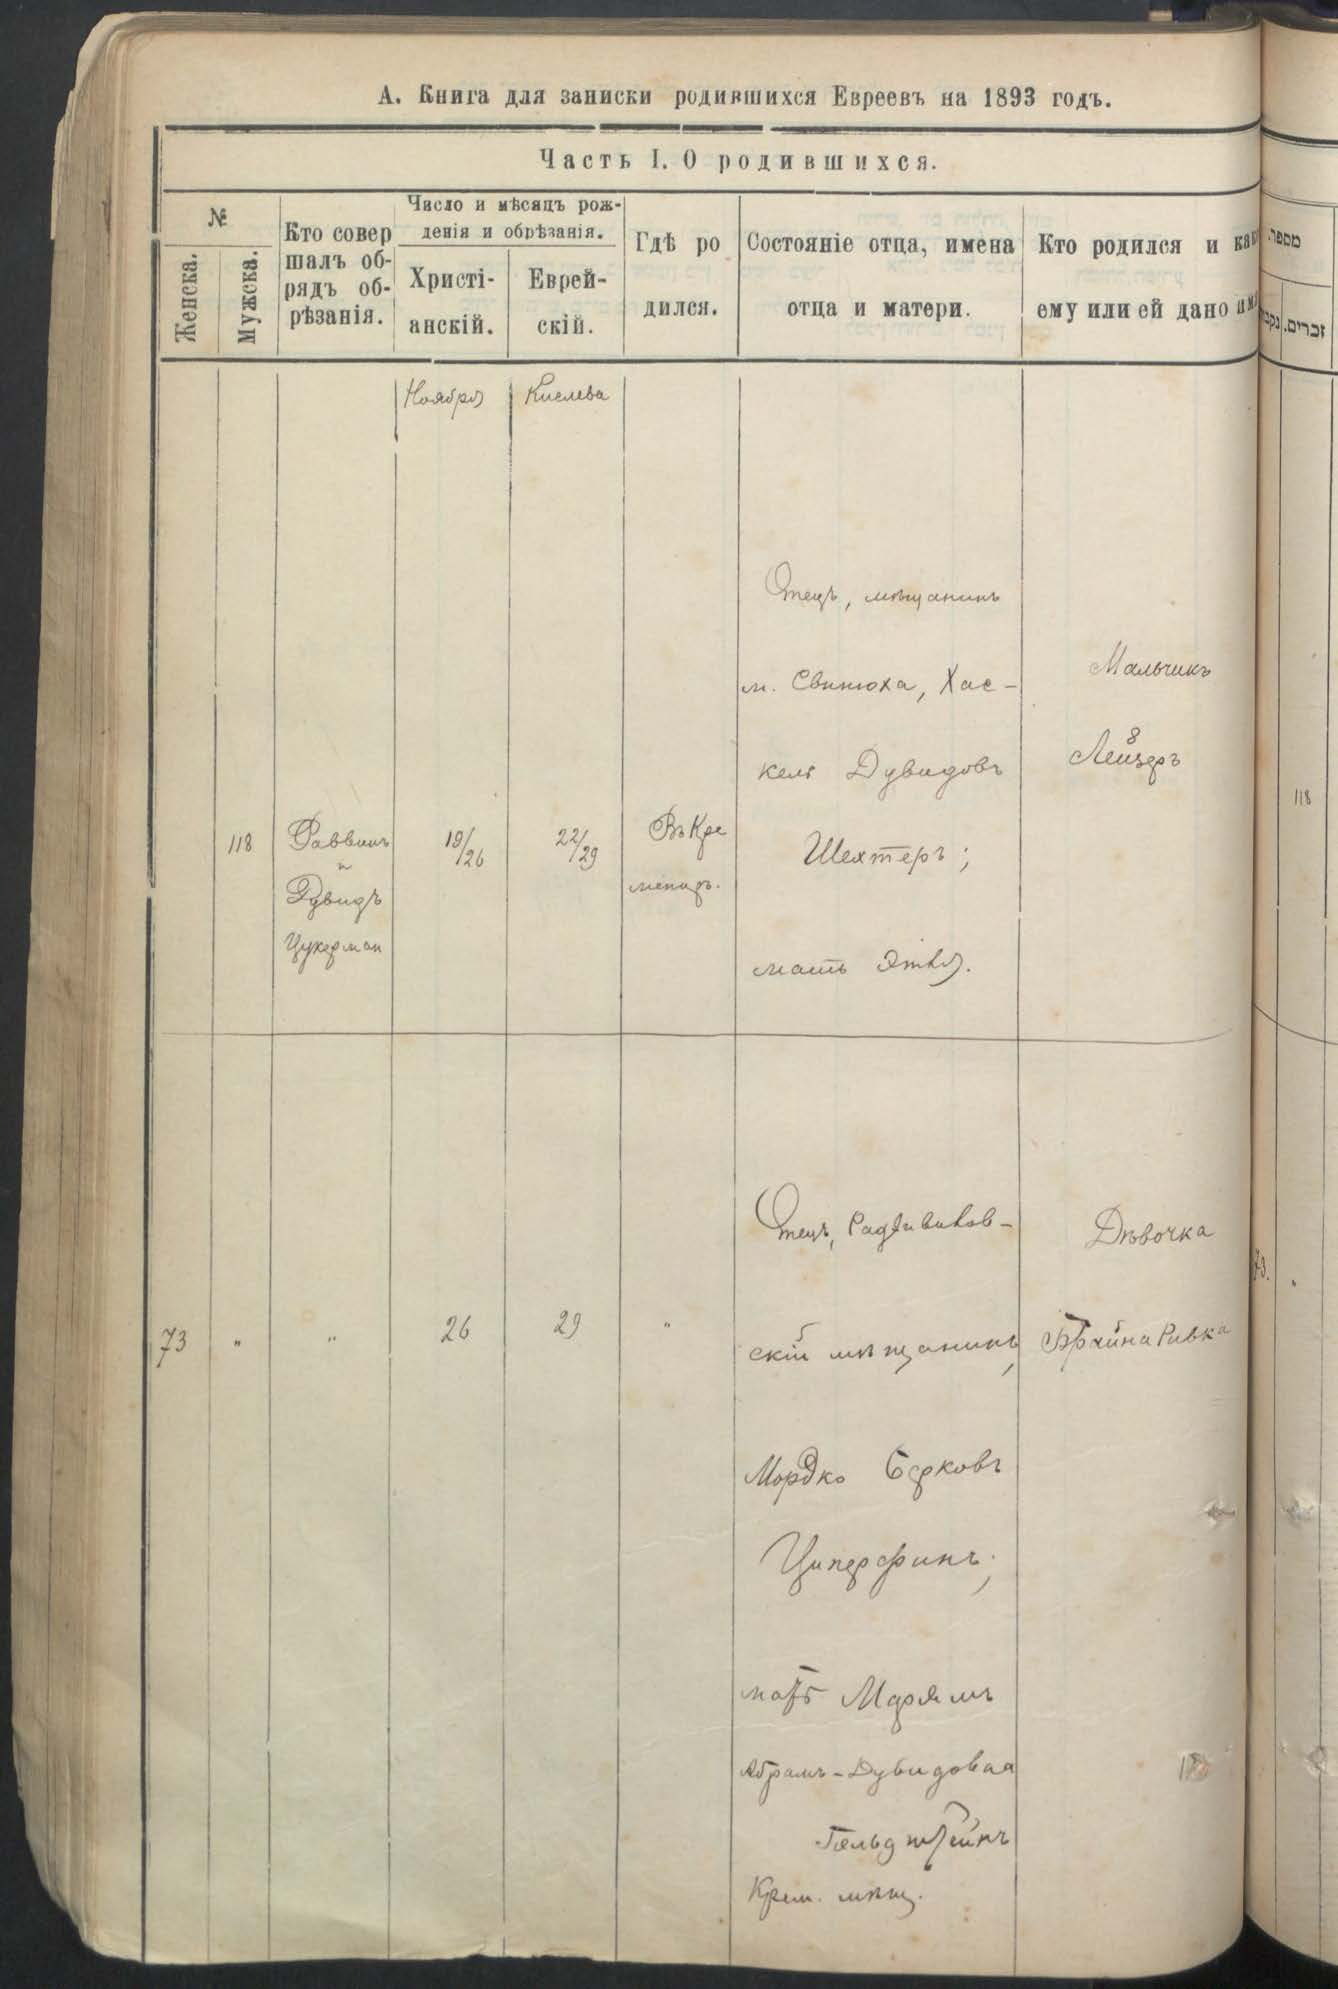 А. Книга для записки родившихся Евреевъ на 1893 годъ.
Часть I. О родившихся.
№
Женска.
Мужска.
Кто совер
шалъ об-
рядъ об-
рѣзанія.
Число и мѣсяцъ рож-
денія и обрѣзанія.
Христі-
анскій.
Еврей-
скій.
Гдѣ ро
дился.
Состояніе отца, имена
отца и матери.
Кто родился и как
ему или ей дано им
מספר.
זכרים.
Ноября
Кислева
118
Раввинъ
и
Дувидъ
Цукерман
19/26
22/29
Въ Кре
менцѣ.
Отецъ, мѣщанинъ
м. Свинюха, Хас-
кель Дувидовъ
Шехтеръ;
мать Этля.
Мальчикъ
Лейзеръ
118
73
"
"
26
29
"
Отецъ, Радзивилов-
скій мѣщанинъ,
Мордко Берковъ
Циперфинъ;
мать Марямъ
Абрамъ-Дувидовна
Гольдштейнъ
Крем. мѣщ.
Дѣвочка
Брайна Ривка
73.
"